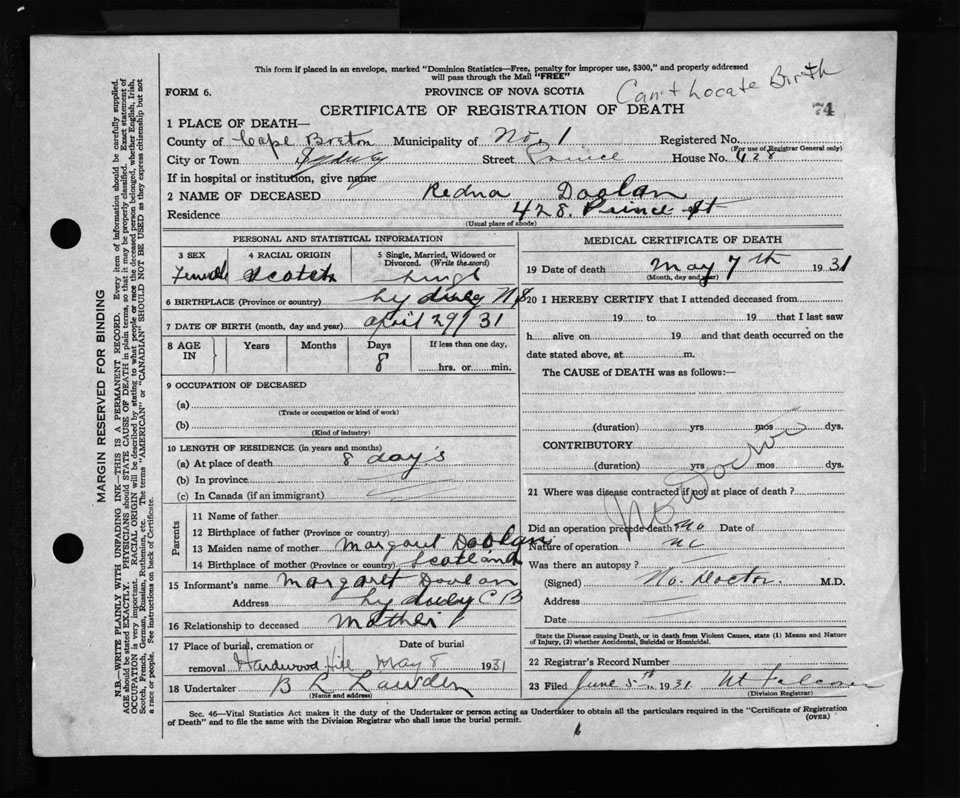 This form if placed in an envelope, marked "Dominion Statistics—Free, penalty for improper use, $300," and properly addressed
will pass through the Mail "FREE"
FORM 6.
PROVINCE OF NOVA SCOTIA
Can't Locate Birth
CERTIFICATE OF REGISTRATION OF DEATH
74
1 PLACE OF DEATH—
County of Cape Breton Municipality of No. 1 Registered No.
(For use of Registrar General only)
City or Town Sydney Street Prince House No. 428
If in hospital or institution, give name
2 NAME OF DECEASED Redna Doolan
Residence 428. Prince St
(Usual place of abode)
PERSONAL AND STATISTICAL INFORMATION
3 SEX 4 RACIAL ORIGIN 5 Single, Married, Widowed or
Divorced. (Write the word)
Female Scotch Singl
6 BIRTHPLACE (Province or country) Sydney NS
7 DATE OF BIRTH (month, day and year) april 29/31
8 AGE IN Years Months Days If less than one day,
8 hrs. or min.
9 OCCUPATION OF DECEASED
(a)
(Trade or occupation or kind of work)
(b)
(Kind of industry)
10 LENGTH OF RESIDENCE (in years and months)
(a) At place of death 8 day's
(b) In province
(c) In Canada (if an immigrant)
Parents
11 Name of father
12 Birthplace of father (Province or country)
13 Maiden name of mother Margaret Doolan
14 Birthplace of mother (Province or country) Scotland
15 Informant's name Margaret Doolan
Address Sydney C B
16 Relationship to deceased Mother
17 Place of burial, cremation or Date of burial
removal Hardwood Hill May 8 1931
18 Undertaker B L Lawden
(Name and address)
MEDICAL CERTIFICATE OF DEATH
19 Date of death May 7th 1931
(Month, day and year)
20 I HEREBY CERTIFY that I attended deceased from
19 to 19 that I last saw
h alive on 19 and that death occurred on the
date stated above, at m.
The CAUSE of DEATH was as follows:—
(duration) yrs mos dys.
CONTRIBUTORY
(duration) yrs mos dys.
No Doctor
21 Where was disease contracted if not at place of death?
Did an operation precede death? No Date of
Nature of operation
Was there an autopsy?
(Signed) No. Doctor. M.D.
Address
Date
State the Disease causing Death, or in death from Violent Causes, state (1) Means and Nature
of Injury, (2) whether Accidental, Suicidal or Homicidal.
22 Registrar's Record Number
23 Filed June 5th 1931
(Division Registrar)
Sec. 46—Vital Statistics Act makes it the duty of the Undertaker or person acting as Undertaker to obtain all the particulars required in the "Certificate of Registration
of Death" and to file the same with the Division Registrar who shall issue the burial permit.
(OVER)
MARGIN RESERVED FOR BINDING
N.B.—WRITE PLAINLY WITH UNFADING INK—THIS IS A PERMANENT RECORD. Every item of information should be carefully supplied.
AGE should be stated EXACTLY. PHYSICIANS should STATE CAUSE OF DEATH in plain terms, so that it may be properly classified. Exact statement of
OCCUPATION is very important. RACIAL ORIGIN will be described by stating to what people or race the deceased person belonged, whether English, Irish,
Scotch, French, German, Russian, Ruthenian, etc. The terms "AMERICAN" or "CANADIAN" SHOULD NOT BE USED as they express citizenship but not
a race or people. See instructions on back of Certificate.